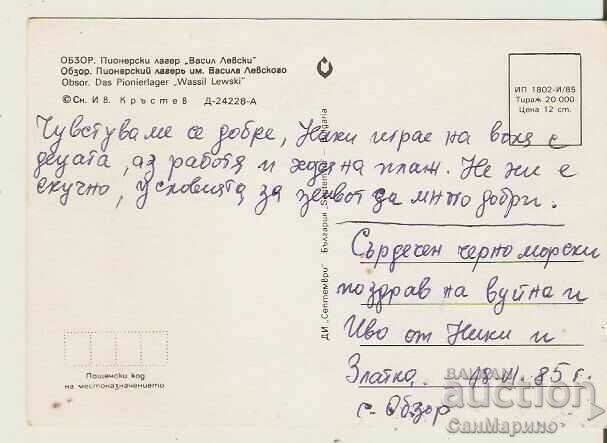 ОБЗОР. Пионерски лагер „Васил Левски"
Обзор. Пионерский лагерь им. Василя Левского
Obsor. Das Pionierlager „Wassil Lewski"
© Сн. Ив. Кръстев Д-24228-А
ИП 1802-И/85
Тираж 20 000
Цена 12 ст.
Чувстуваме се добре, Ники играе на воля с
децата, аз работя и ходя на плаж. Не ни е
скучно, условията за живот са много добри.
Сърдечен черноморски
поздрав на вуйна и
Иво от Ники и
Златка. 18.VI.85 г.
с. Обзор
ДИ „Септември" България
Пощенски код
на местоназначението
БАЛКАН
auction
СанМарино